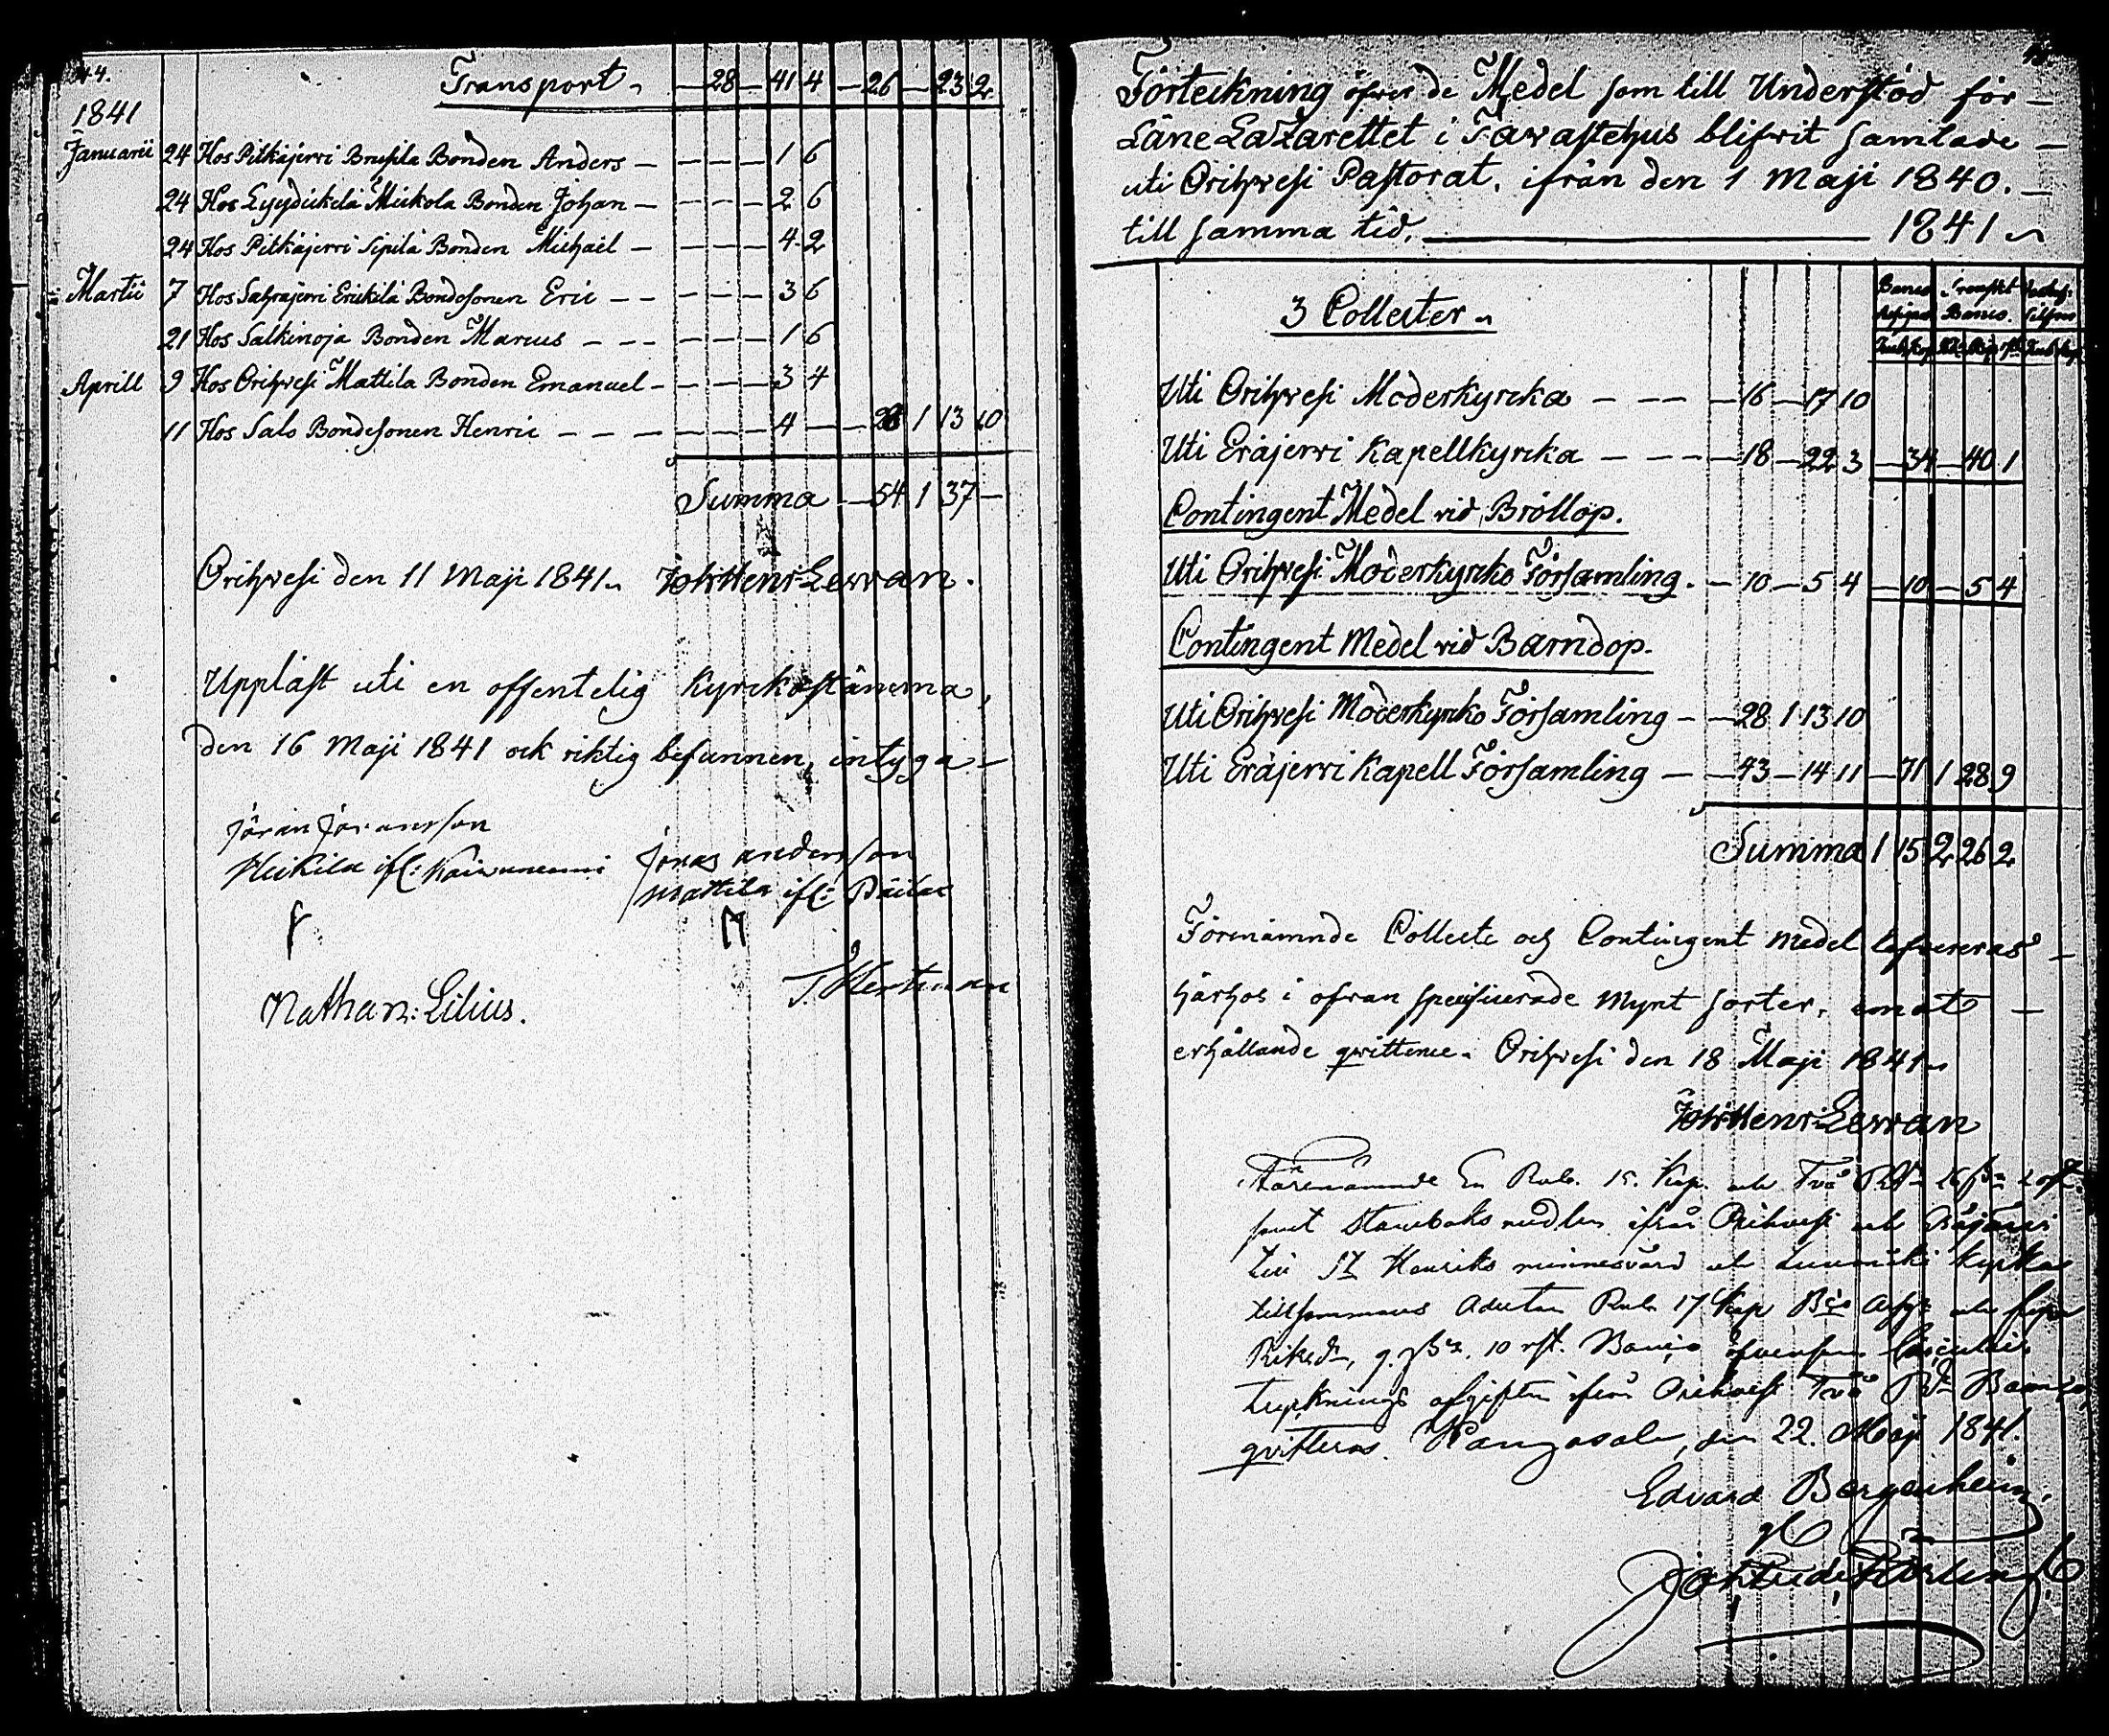 44.
Transport — 28 — 41 4 — 26 — 23 2
1841
Januarii 24 Hos Pitkäjervi Brusila Bonden Anders — — — — 1 6
24 Hos Lyydickelä Mickola Bonden Johan — — — — 2 6
24 Hos Pitkäjervi Sipilä Bonden Michaël — — — — 4 2
Martii 7 Hos Sahrajervi Erickilä Bondesonen Eric — — — — — 3 6
21 Hos Salkinoja Bonden Marcus — — — — — — 1 6
Aprill 9 Hos Orihvesi Mattila Bonden Emanuel — — — — 3 4
11 Hos Salo Bondesonen Henric — — — — — — 4 — — 28 1 13 10
Summa — 54 1 37 —
Orihvesi den 11 Maji 1841. Joh: Henr: Levvan.
Uppläst uti en offentelig Kyrckostämma,
den 16 Maji 1841 ock riktig befunnen, intyga —
Jöran Jöransson
Heikilä ifl: Jonas andersson
Mattila ifl:
Nathan: Lilius.
Förteckning öfver de Medel som till Understöd för —
Läne Lazarettet i Tawastehus blifvit samlade —
uti Orihvesi Pastorat, ifrån den 1 Maji 1840. —
till samma tid. 1841
3 Collecter
Banco Banco.
Uti Orihvesi Moderkyrcka — — — — 16 — 17 10
Uti Eräjervi Kapellkyrcka — — — — 18 — 22 3 — 34 — 40 1
Contingent Medel vid Bröllop.
Uti Orihvesi Moderkyrcko Församling. — 10 — 5 4 — 10 — 5 4
Contingent Medel vid Barndop.
Uti Orihvesi Moderkyrcko Församling — — 28 1 13 10
Uti Eräjervi Kapell Församling — — 43 — 14 11 — 71 1 28 9
Summa 1 15 2 26 2
Förenämnde Collecte och Contingent medel lefvereras —
härhos i ofvan specificerade Mynt sorter, emot —
erhållande qvittence. Orihvesi den 18 Maji 1841
Joh: Henr: Levvan
Förenämnde En Rub. 15. Kop. och Två 26
samt Stamboks medlen ifrån Orihvesi och Eräjärvi
till St Henriks minnesvård och Kyrka
tillsammans Rub 17 Kop och
10 rst. Banco
afgiften ifrån Orihvesi Två Banco,
qvitteras. Kangasala, den 22. Maji 1841.
Edvard Bergenheim.